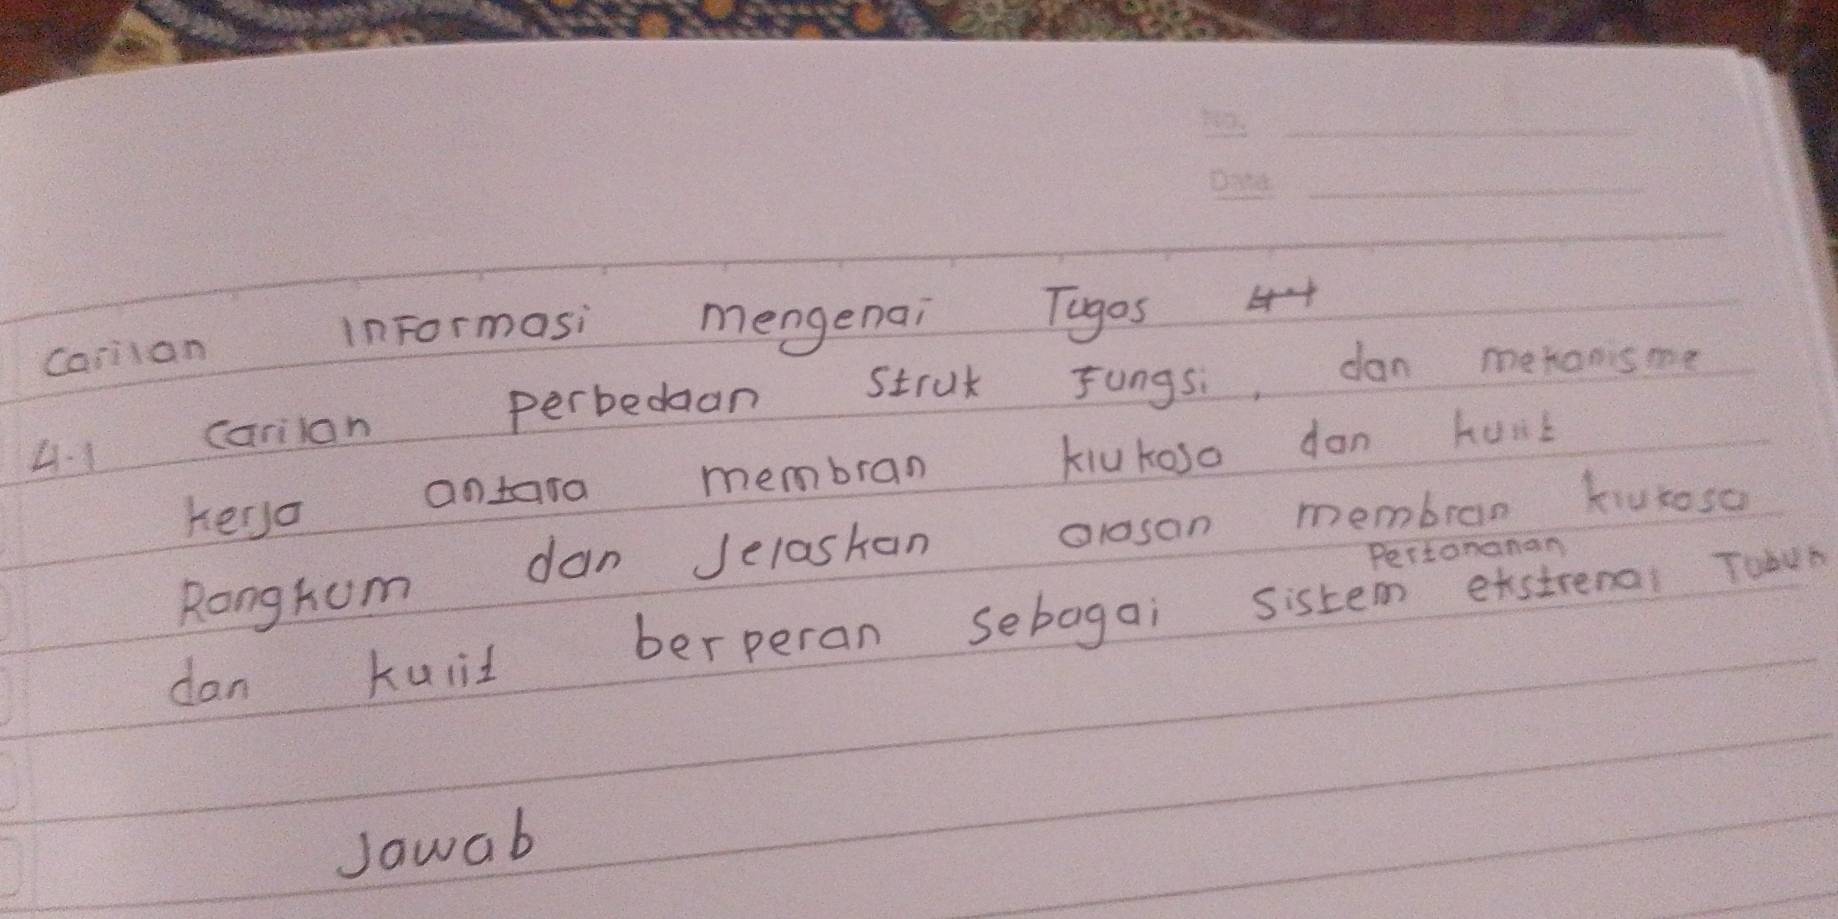 No.
Date
carilan informasi mengenai Tugas
4.1 carilan perbedaan struk Fungsi, dan mekanisme
kerja antara membran klukosa dan kulit
Rangkum dan Jelaskan alasan membran klukosa
Pertahanan
dan kulit berperan sebagai sistem ekstrenal Tubuh
Jawab